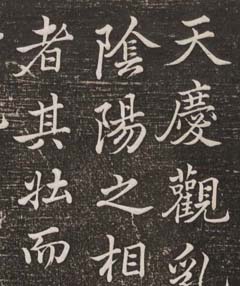 天慶觀乳
陰陽之相
者其壯而